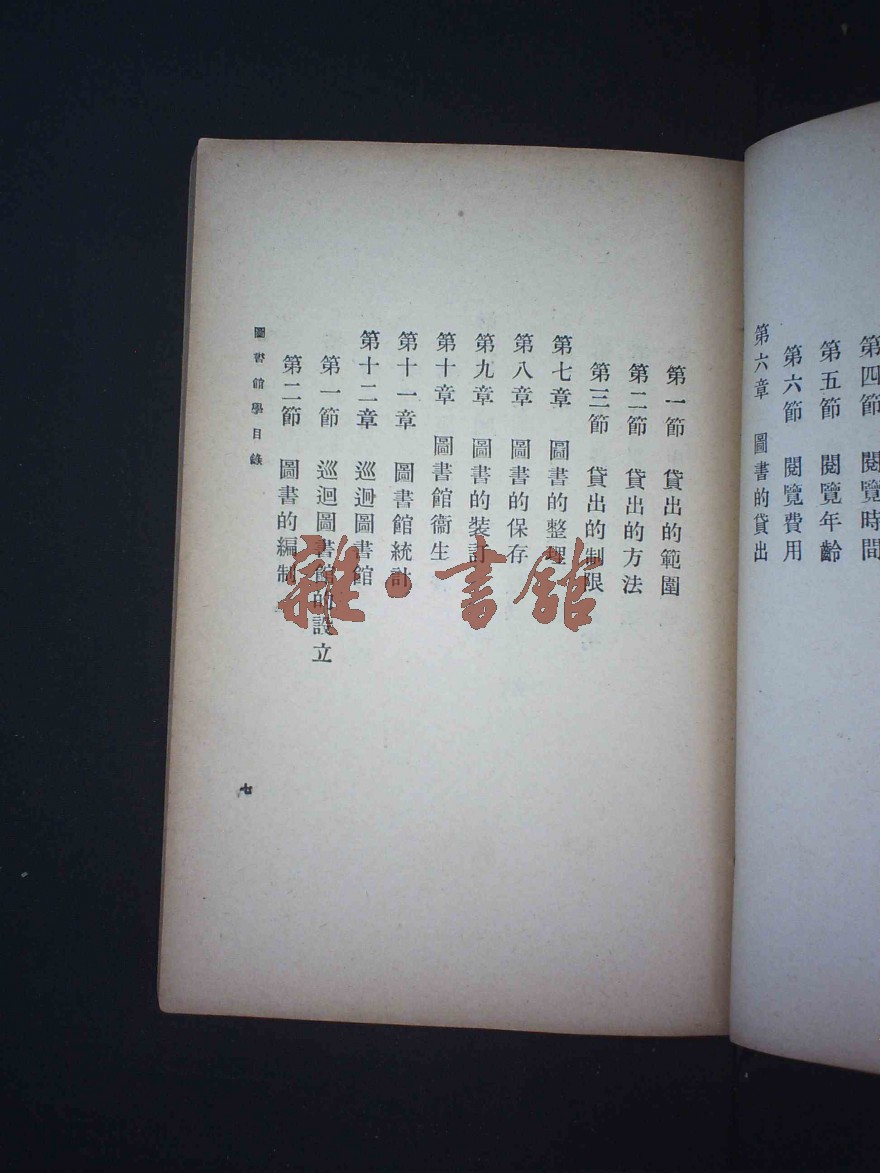 第四節　閱覽時間
第五節　閱覽年齡
第六節　閱覽費用
第六章　圖書的貸出
第一節　貸出的範圍
第二節　貸出的方法
第三節　貸出的制限
第七章　圖書的整理
第八章　圖書的保存
第九章　圖書的裝訂
第十章　圖書館衞生
第十一章　圖書館統計
第十二章　巡迴圖書館
第一節　巡迴圖書館的設立
第二節　圖書的編制
圖書館學目錄
七
雜·書館